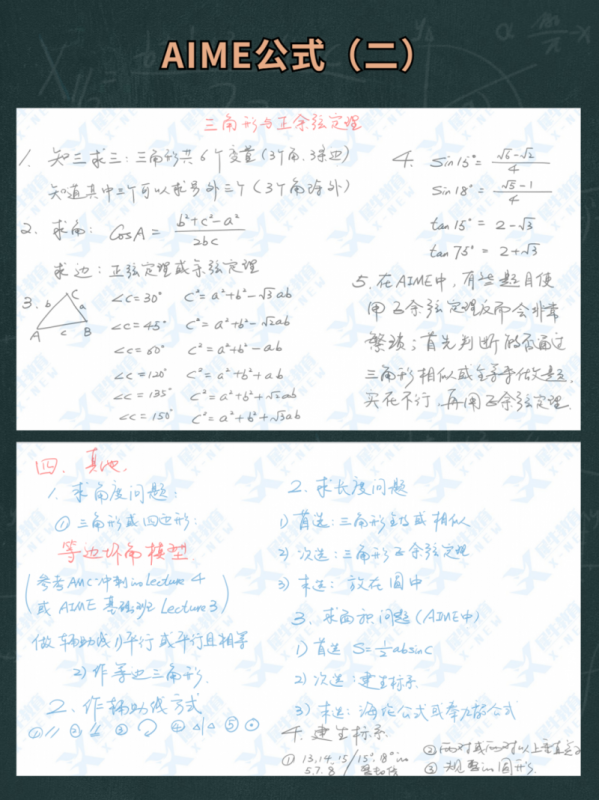 AIME公式（二）
三角形与正余弦定理
1. 知三求三：三角形共6个变量(3个角,3条边)
知道其中三个可以求另外三个(3个角除外)
2. 求角: CosA = (b²+c²-a²)/(2bc)
求边：正弦定理或余弦定理
3.
C
b
a
A
c
B
∠C=30° C²=a²+b²-√3ab
∠C=45° C²=a²+b²-√2ab
∠C=60° C²=a²+b²-ab
∠C=120° C²=a²+b²+ab
∠C=135° C²=a²+b²+√2ab
∠C=150° C²=a²+b²+√3ab
4. Sin15°= (√6-√2)/4
Sin18°= (√5-1)/4
tan15°= 2-√3
tan75°= 2+√3
5. 在AIME中，有些题目使
用正余弦定理反而会非常
繁琐；首先判断能否通过
三角形相似或全等来做题.
实在不行,再用正余弦定理.
四. 其他.
1. 求角度问题:
① 三角形或四边形:
等边外角模型
(参考AMC冲刺in Lecture 4
或 AIME 基础班 Lecture 3)
做辅助线 1)平行或平行且相等
2) 作等边三角形.
2. 作辅助线方式
① // ② ③ ④ ⑤
2. 求长度问题
1) 首选:三角形全等或相似
2) 次选:三角形正余弦定理
3) 末选: 放在圆中
3. 求面积问题(AIME中)
1) 首选 S=½absinC
2) 次选:建坐标系
3) 末选: 海伦公式或举力格公式
4. 建坐标系
① 13,14,15/15°,18° in
5.7.8
② 两对或两对以上垂直
③ 规整in图形.